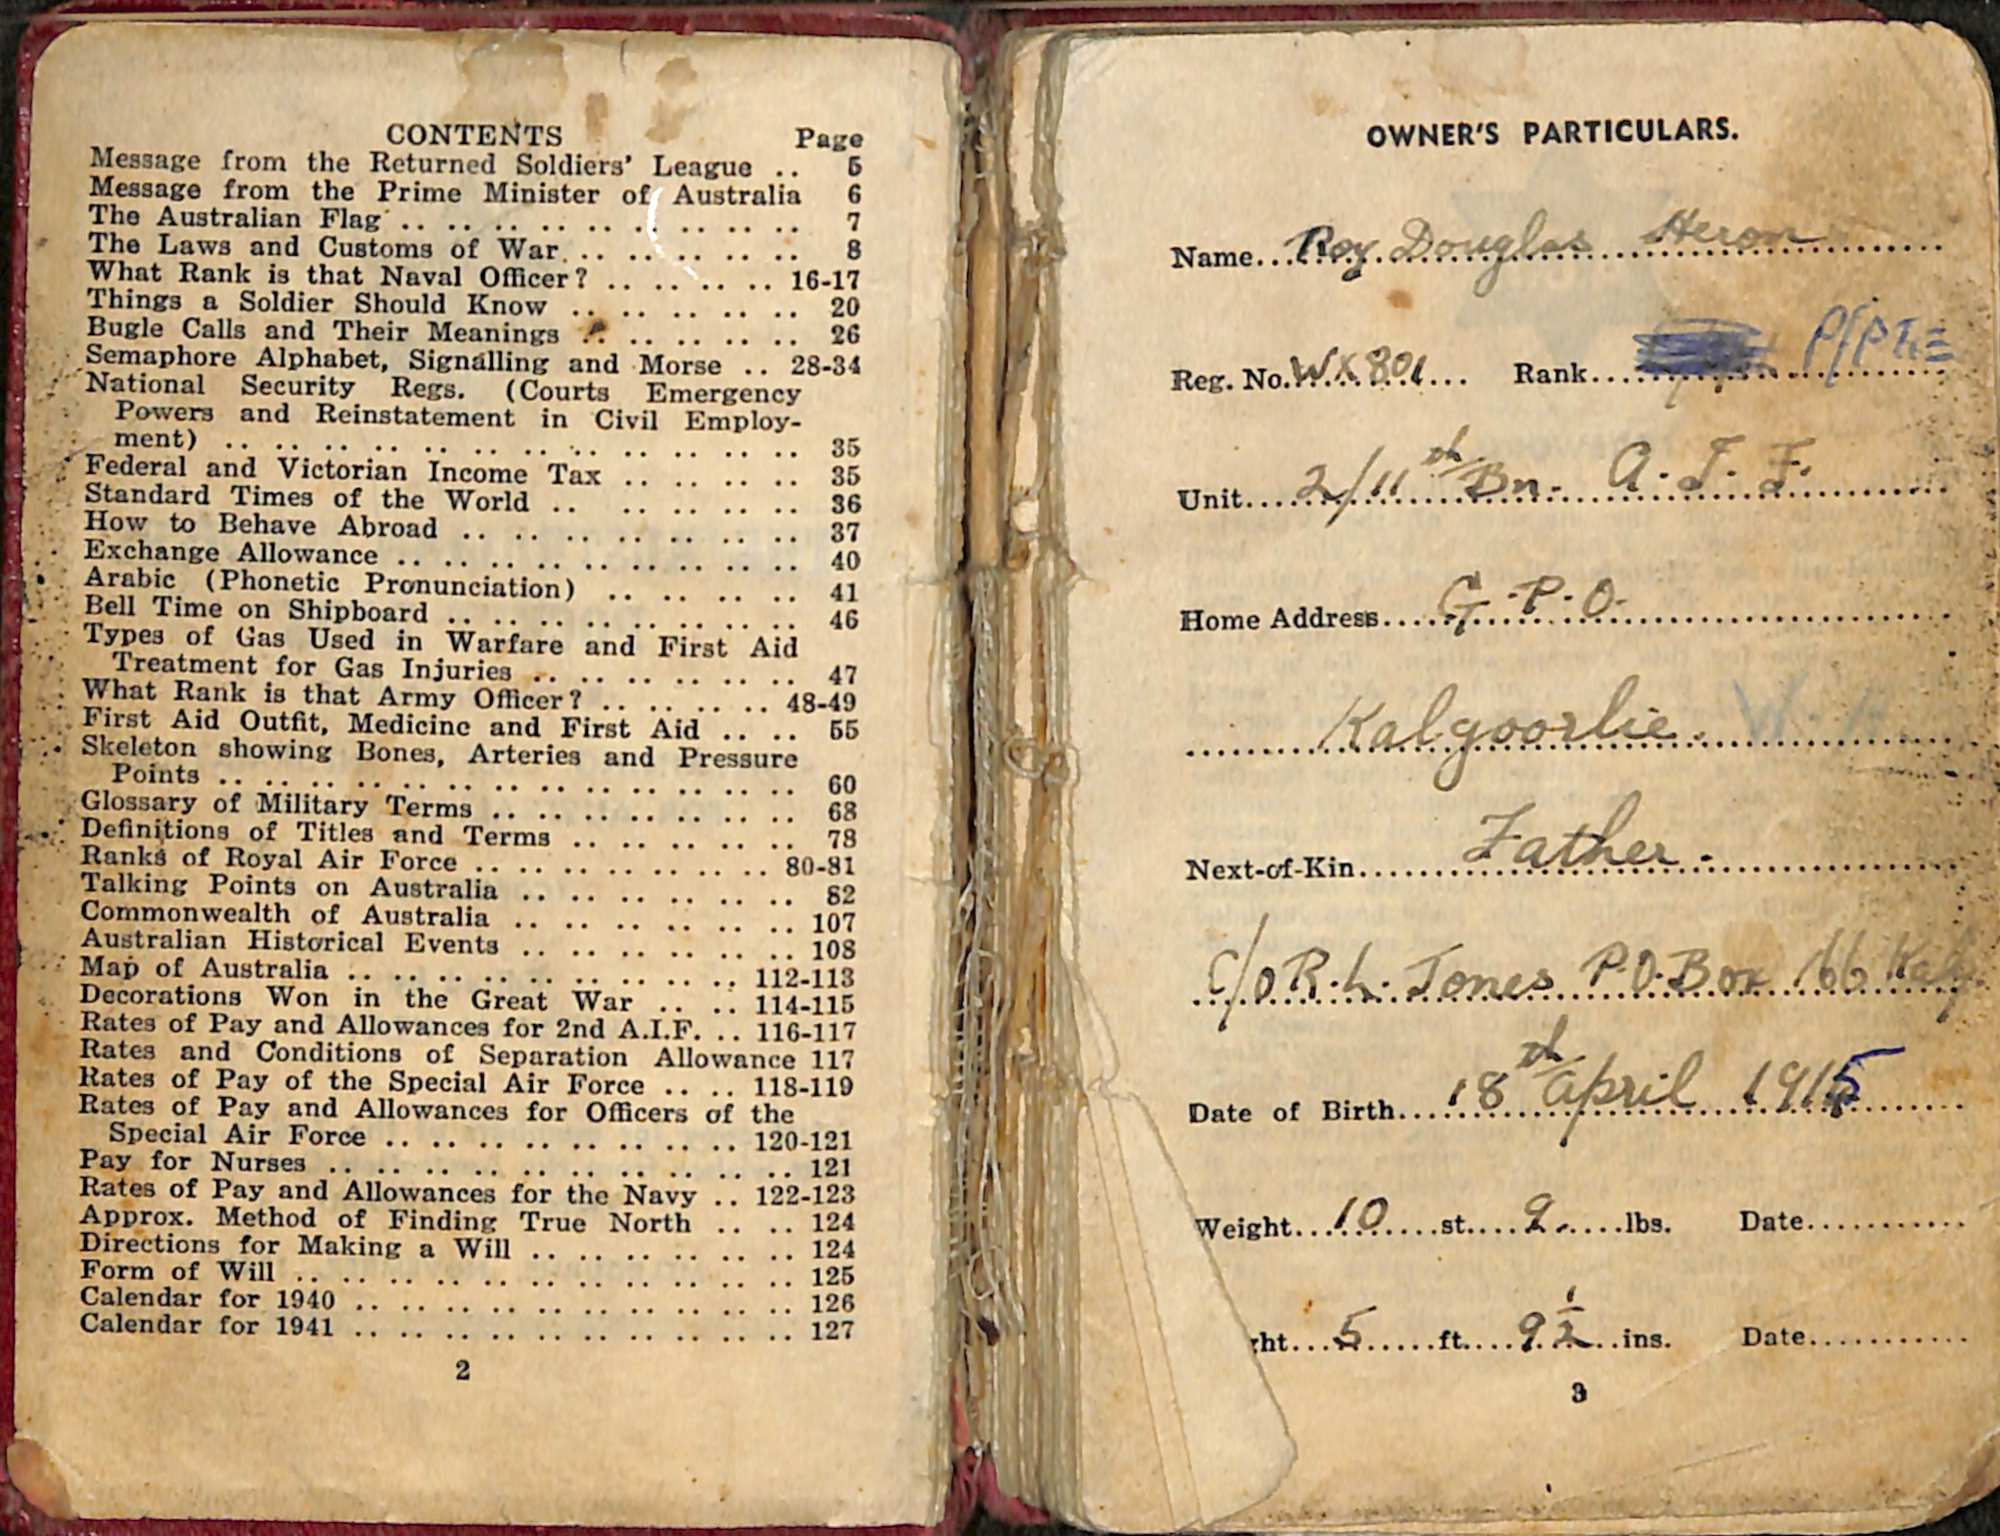 CONTENTS Page
Message from the Returned Soldiers' League .. 5
Message from the Prime Minister of Australia 6
The Australian Flag .. .. .. .. .. .. .. .. .. 7
The Laws and Customs of War .. .. .. .. .. 8
What Rank is that Naval Officer? .. .. .. .. 16-17
Things a Soldier Should Know .. .. .. .. .. 20
Bugle Calls and Their Meanings .. .. .. .. .. 26
Semaphore Alphabet, Signalling and Morse .. 28-34
National Security Regs. (Courts Emergency
Powers and Reinstatement in Civil Employ-
ment) .. .. .. .. .. .. .. .. .. .. .. .. 35
Federal and Victorian Income Tax .. .. .. .. 35
Standard Times of the World .. .. .. .. .. 36
How to Behave Abroad .. .. .. .. .. .. .. 37
Exchange Allowance .. .. .. .. .. .. .. .. .. 40
Arabic (Phonetic Pronunciation) .. .. .. .. 41
Bell Time on Shipboard .. .. .. .. .. .. .. 46
Types of Gas Used in Warfare and First Aid
Treatment for Gas Injuries .. .. .. .. .. .. 47
What Rank is that Army Officer? .. .. .. .. 48-49
First Aid Outfit, Medicine and First Aid .. .. 55
Skeleton showing Bones, Arteries and Pressure
Points .. .. .. .. .. .. .. .. .. .. .. .. 60
Glossary of Military Terms .. .. .. .. .. .. 68
Definitions of Titles and Terms .. .. .. .. .. 78
Ranks of Royal Air Force .. .. .. .. .. .. .. 80-81
Talking Points on Australia .. .. .. .. .. .. 82
Commonwealth of Australia .. .. .. .. .. .. 107
Australian Historical Events .. .. .. .. .. .. 108
Map of Australia .. .. .. .. .. .. .. .. 112-113
Decorations Won in the Great War .. .. 114-115
Rates of Pay and Allowances for 2nd A.I.F. .. 116-117
Rates and Conditions of Separation Allowance 117
Rates of Pay of the Special Air Force .. .. 118-119
Rates of Pay and Allowances for Officers of the
Special Air Force .. .. .. .. .. .. .. .. 120-121
Pay for Nurses .. .. .. .. .. .. .. .. .. .. 121
Rates of Pay and Allowances for the Navy .. 122-123
Approx. Method of Finding True North .. .. 124
Directions for Making a Will .. .. .. .. .. .. 124
Form of Will .. .. .. .. .. .. .. .. .. .. .. 125
Calendar for 1940 .. .. .. .. .. .. .. .. .. 126
Calendar for 1941 .. .. .. .. .. .. .. .. .. 127
2
OWNER'S PARTICULARS.
Name...Roy Douglas Heron
Reg. No. WX801 Rank...
Unit...2/11th Bn. A.I.F.
Home Address...G.P.O.
Kalgoorlie. W.A.
Next-of-Kin...Father.
C/o R.L. Jones P.O. Box 166 Kalg
Date of Birth...18th April 1915
Weight...10...st...9...lbs. Date...
ght...5...ft...9½...ins. Date...
3